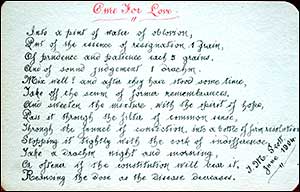 Cure For Love.
Into a pint of water of oblivion,
Put of the essence of resignation 1 grain,
Of prudence and patience each 3 grains,
And of sound judgement 1 drachm.
Mix well! and after they have stood some time,
Take off the scum of former remembrances,
And sweeten the mixture, with the spirit of hope,
Pass it through the filter of common sense,
Through the funnel of conviction, into a bottle of firm resolution
Stopping it tightly with the cork of indifference,
Take a drachm night and morning,
Or oftener if the constitution will bear it,
Reducing the dose as the disease decreases.
J. M. Scott.
June 1904.